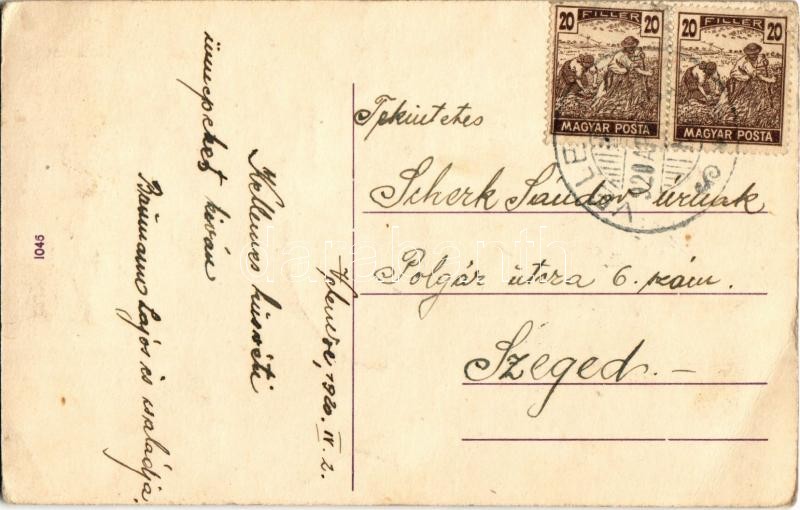 20 FILLER 20
MAGYAR POSTA
20 FILLER 20
MAGYAR POSTA
920 AP
Tekintetes
Scherk Sándor úrnak
Polgár utcza 6. szám.
Szeged. –
1920. IV. 2.
Kellemes húsvéti
ünnepeket kiván
Baumann Lajos és családja.
1045
darabanth